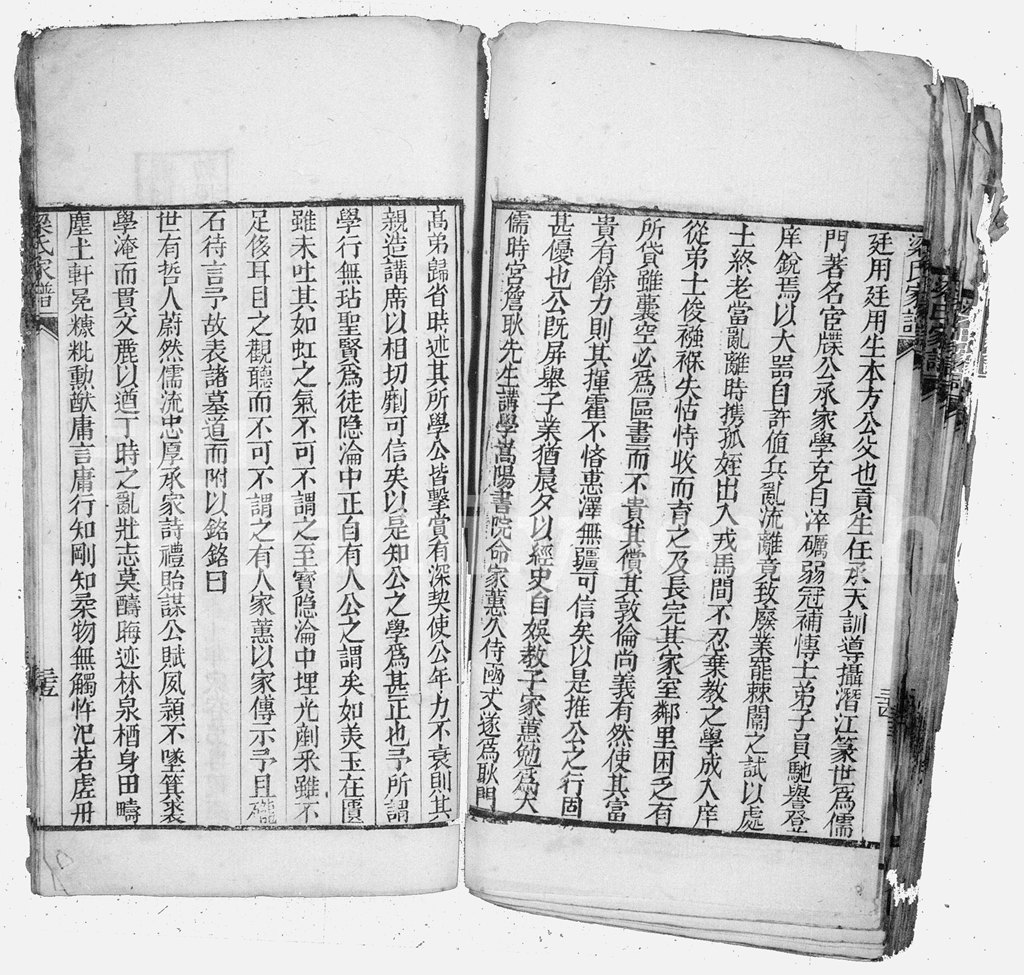 梁氏家譜
廷用廷用生本方公父也貢生任承天訓導攝潛江篆世爲儒
門著名宦牒公承家學克自淬礪弱冠補慱士弟子員馳譽登
庠銳焉以大器自許値兵亂流離竟致廢業罷棘闈之試以處
士終老當亂離時携孤姪出入戎馬間不忍棄教之學成入庠
從弟士俊襁褓失怙恃收而育之及長完其家室鄰里困乏有
所貸雖囊空必爲區畫而不貴其償其敦倫尚義有然使其富
貴有餘力則其揮霍不悋惠澤無疆可信矣以是推公之行固
甚優也公旣屏舉子業猶晨夕以經史自娛教子家蕙勉爲大
儒時宮詹耿先生講學嵩陽書院命家蕙久侍凾丈遂爲耿門
高弟歸省時述其所學公皆擊賞有深契使公年力不衰則其
親造講席以相切劘可信矣以是知公之學爲甚正也予所謂
學行無玷聖賢爲徒隐淪中正自有人公之謂矣如美玉在匱
雖未吐其如虹之氣不可不謂之至寶隐淪中埋光剷釆雖不
足侈耳目之觀聽而不可不謂之有人家蕙以家傳示予且礲
石待言予故表諸墓道而附以銘銘曰
世有哲人蔚然儒流忠厚承家詩禮貽謀公賦夙頴不墜箕裘
學淹而貫文麗以遒丁時之亂壯志莫醻晦迹林泉栖身田疇
塵土軒冕糠粃勲猷庸言庸行知剛知柔物無觸忤汜若虛舟
梁氏家譜